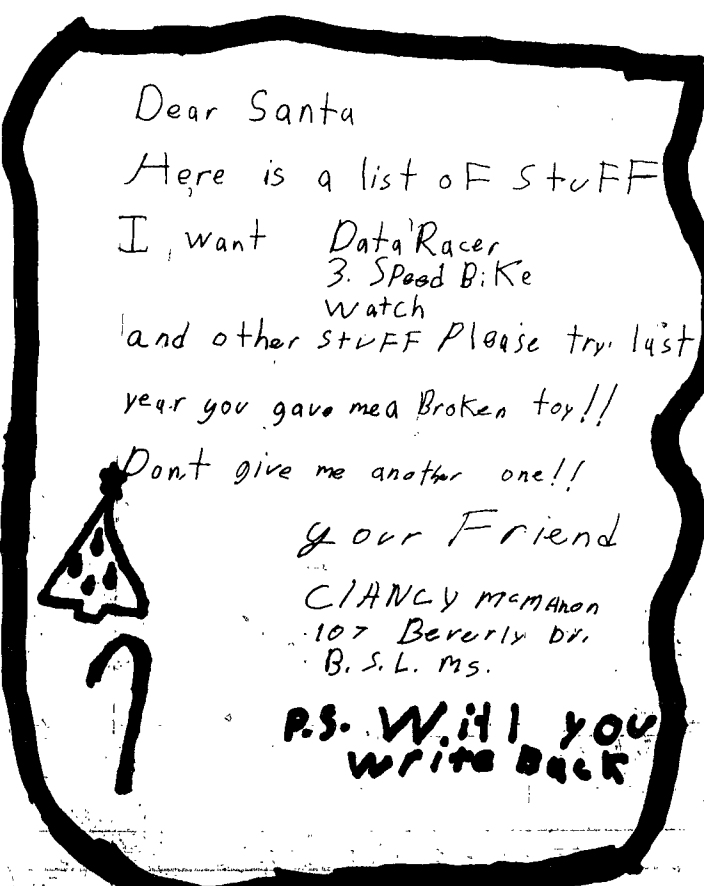 Dear Santa
Here is a list oF StuFF
I want Data Racer
3. Speed Bike
watch
and other stuFF Please try. last
year you gave me a Broken toy!!
Don,t give me another one!!
your Friend
ClANCY mcmAhon
107 Beverly Dr.
B.S.L. Ms.
P.S. Will you
write Back